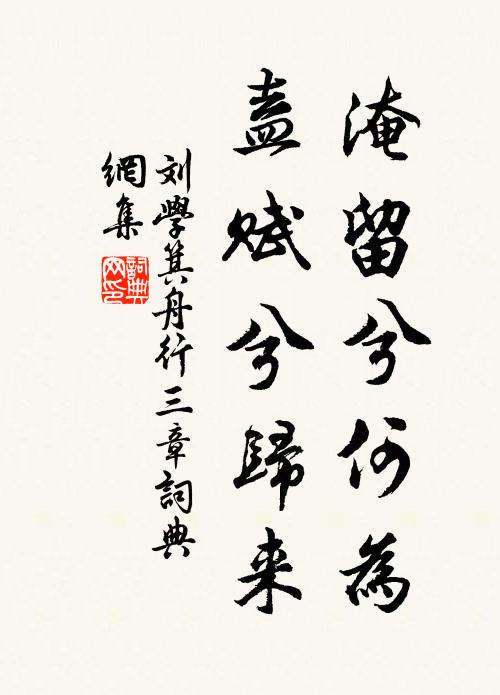 淹留兮何為
盍賦兮歸来
刘學箕舟行三章詞典
網集
詞典網印